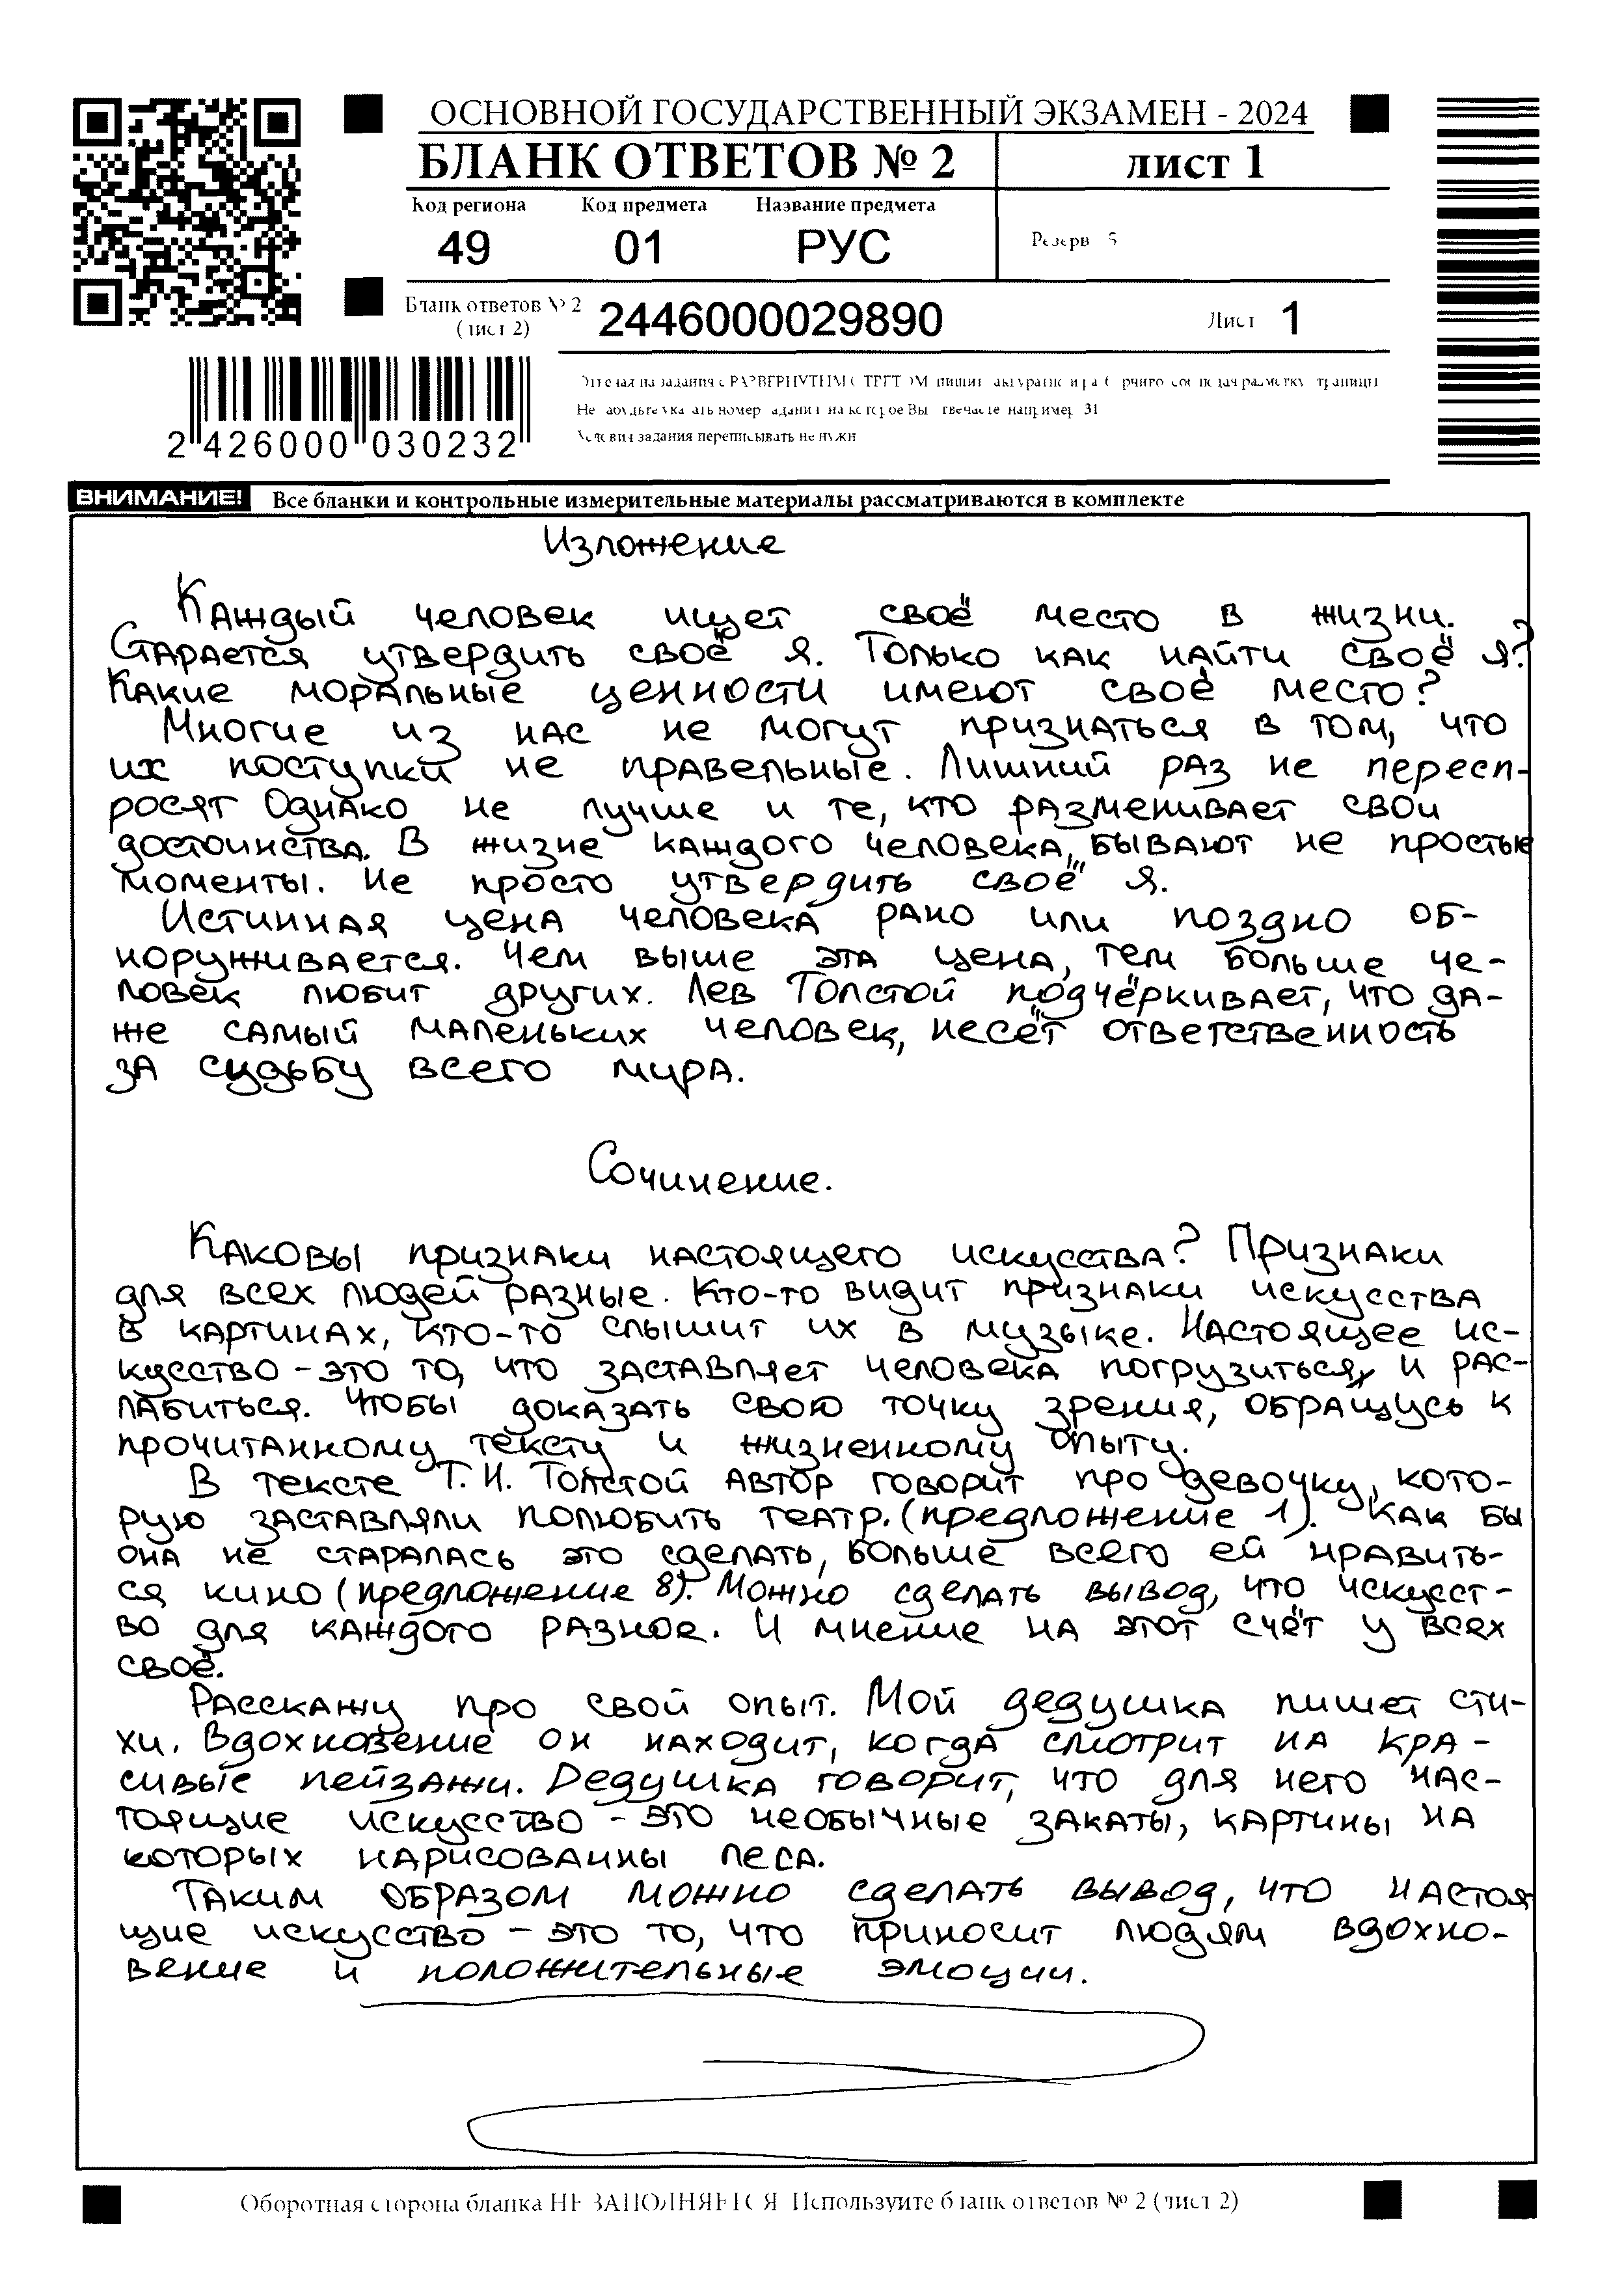 ОСНОВНОЙ ГОСУДАРСТВЕННЫЙ ЭКЗАМЕН - 2024
БЛАНК ОТВЕТОВ № 2 лист 1
Код региона Код предмета Название предмета
49 01 РУС Резерв - 5
Бланк ответов № 2 (лист 2) 2446000029890 Лист 1
2 426000 030232
Условия задания переписывать не нужн
ВНИМАНИЕ! Все бланки и контрольные измерительные материалы рассматриваются в комплекте
Изложение
Каждый человек ищет своё место в жизни.
Старается утвердить своё "я. Только как найти своё я?
Какие моральные ценности имеют своё место?
Многие из нас не могут признаться в том, что
их поступки не правельные. Лишний раз не пересп-
росят Однако не лучше и те, кто разменивает свои
достоинства. В жизне каждого человека, бывают не простые
моменты. Не просто утвердить своё "я.
Истинная цена человека рано или поздно об-
норуживается. Чем выше эта цена, тем больше че-
ловек любит других. Лев Толстой подчёркивает, что да-
же самый маленьких человек, несёт ответственность
за судьбу всего мира.
Сочинение.
Каковы признаки настоящего искусства? Признаки
для всех людей разные. Кто-то видит признаки искусства
в картинах, кто-то слышит их в музыке. Настоящее ис-
кусство - это то, что заставляет человека погрузиться, и рас-
лабиться. Чтобы доказать свою точку зрения, обращусь к
прочитанному тексту и жизненному опыту.
В тексте Т. И. Толстой автор говорит про девочку, кото-
рую заставляли полюбить театр. (предложение 1). Как бы
она не старалась это сделать, больше всего ей нравить-
ся кино (предложение 8). Можно сделать вывод, что искусст-
во для каждого разное. И мнение на этот счёт у всех
своё.
Расскажу про свой опыт. Мой дедушка пишет сти-
хи. Вдохновение он находит, когда смотрит на кра-
сивые пейзажи. Дедушка говорит, что для него нас-
тоящие искусство - это необычные закаты, картины на
которых нарисованны леса.
Таким образом можно сделать вывод, что настоя
щие искусство - это то, что приносит людям вдохно-
вение и положительные эмоции.
Оборотная сторона бланка НЕ ЗАПОЛНЯЕТСЯ Используйте бланк ответов № 2 (лист 2)